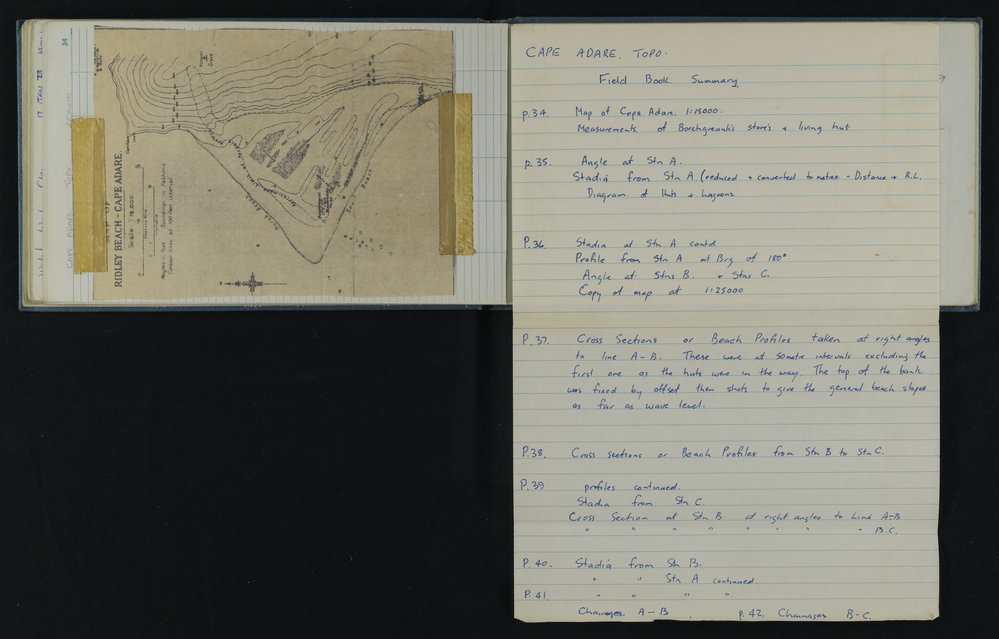 34
RIDLEY BEACH - CAPE ADARE.
Scale 1:15,000
Heights in Feet Soundings, Fathoms
Contour lines at 100 Feet interval
North Beach
South Beach
CAPE ADARE TOPO
CAPE ADARE. TOPO.
Field Book. Summary
p.34. Map of Cape Adare. 1:15000.
Measurements of Borchgrevink's stores & living hut
p.35. Angle at Stn A.
Stadia from Stn A. (reduced & converted to metres - Distance & R.L.
Diagram of Huts & Lagoons
P.36 Stadia at Stn A contd
Profile from Stn A at Brg of 180°
Angle at Stns B. & Stns C.
Copy of map at 1:25000
P.37. Cross Sections or Beach Profiles taken at right angles
to line A-B. These were at 50metre intervals excluding the
first one as the huts were in the way. The top of the bank
was fixed by offset then shots to give the general beach slopes
as far as wave level.
P.38. Cross sections or Beach Profiles from Stn B to Stn C.
P.39 profiles continued.
Stadia from Stn C.
Cross Section at Stn B at right angles to Line A-B
" " " " " " " " B.C.
P.40. Stadia from Stn B.
" " Stn A continued.
P.41. " " " "
Chainages. A-B. p.42. Chainages B-C.